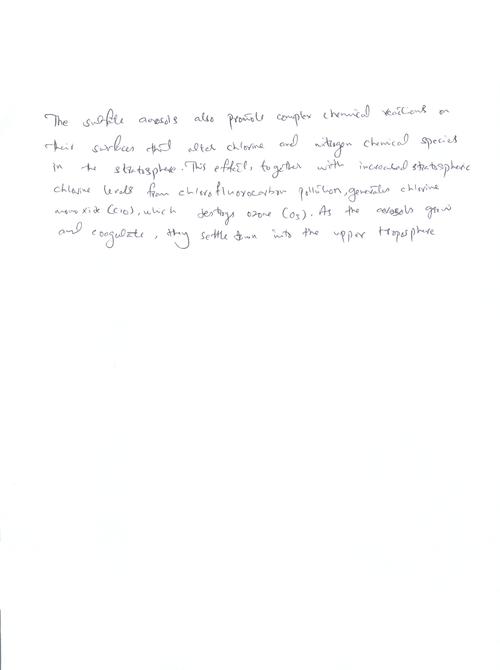 The sulfate aerosols also promote complex chemical reactions on
their surfaces that alter chlorine and nitrogen chemical species
in the stratosphere. This effect, together with increased stratospheric
chlorine levels from chlorofluorocarbon pollution, generates chlorine
monoxide (ClO), which destroys ozone (O3). As the aerosols grow
and coagulate, they settle down into the upper troposphere